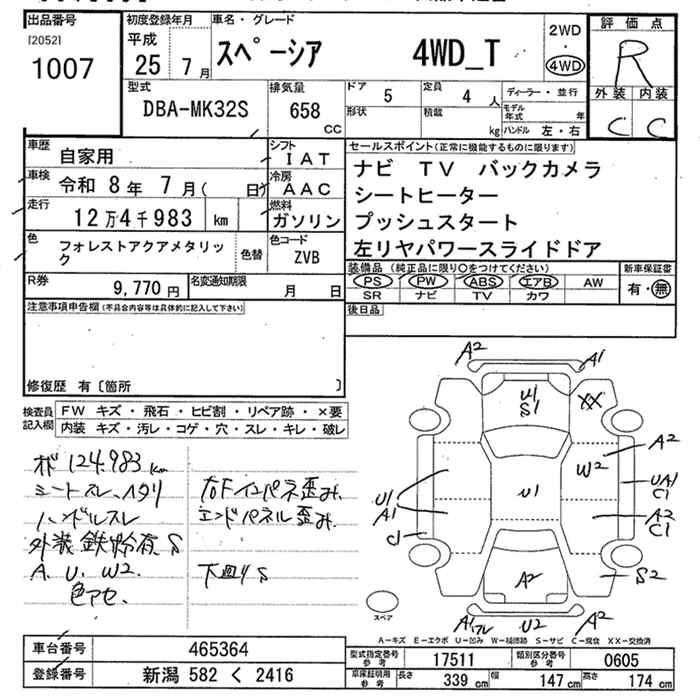 出品番号
[2052]
1007
初度登録年月
平成
25 7 月
車名・グレード
スペーシア 4WD_T
2WD
・
4WD
評価点
R
外装 内装
C C
型式
DBA-MK32S
排気量
658 CC
ドア 5
定員 4 人
形状
積載 kg
ディーラー・並行
モデル年式 年
ハンドル 左・右
車歴 自家用
シフト IAT
車検 令和 8年 7月( 日)
冷房 AAC
走行 12万4千983 km
燃料 ガソリン
色 フォレストアクアメタリック
色替
色コード ZVB
R券 9,770 円
名変通知期限 月 日
セールスポイント(正常に機能するものに限ります)
ナビ TV バックカメラ
シートヒーター
プッシュスタート
左リヤパワースライドドア
装備品 (純正品に限り○をつけてください)
新車保証書
PS PW ABS エアB AW
有・無
SR ナビ TV カワ
後日品
注意事項申告欄 (不具合内容等は具体的に記入して下さい)
修復歴 有〔箇所 〕
検査員記入欄
FW キズ・飛石・ヒビ割・リペア跡・×要
内装 キズ・汚レ・コゲ・穴・スレ・キレ・破レ
124,983 km
シートスレ、ハタリ
ハンドルスレ
外装鉄粉有 S
A. U. W2.
色アセ、
右Fインパネ歪み、
エンドパネル歪み、
下廻り S
A2
A1
U1
S1
XX
A2
W2
U1
U1
A1
UA1
C1
A2
C1
A2
S2
スペア
U2
A2
A-キズ E-エクボ U-凹み W-補修跡 S-サビ C-腐食 XX-交換済
車台番号 465364
登録番号 新潟 582 く 2416
型式指定番号 参考 17511
類別区分番号 参考 0605
車床証明用 参考
長さ 339 cm
幅 147 cm
高さ 174 cm